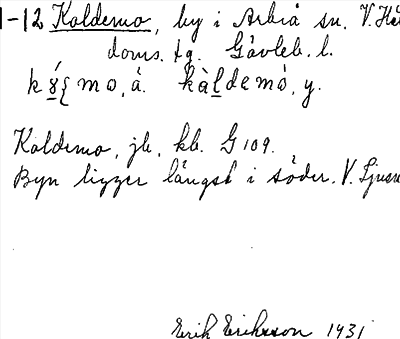 1-12 Koldemo, by i Arbrå sn. V. Hä
doms. tg. Gävleb. l.
mo, ä. kàldemò, y.
Koldemo, jb, kb. G 109.
Byn ligger längst i söder. V. Ljusn
Erik Eriksson 1931